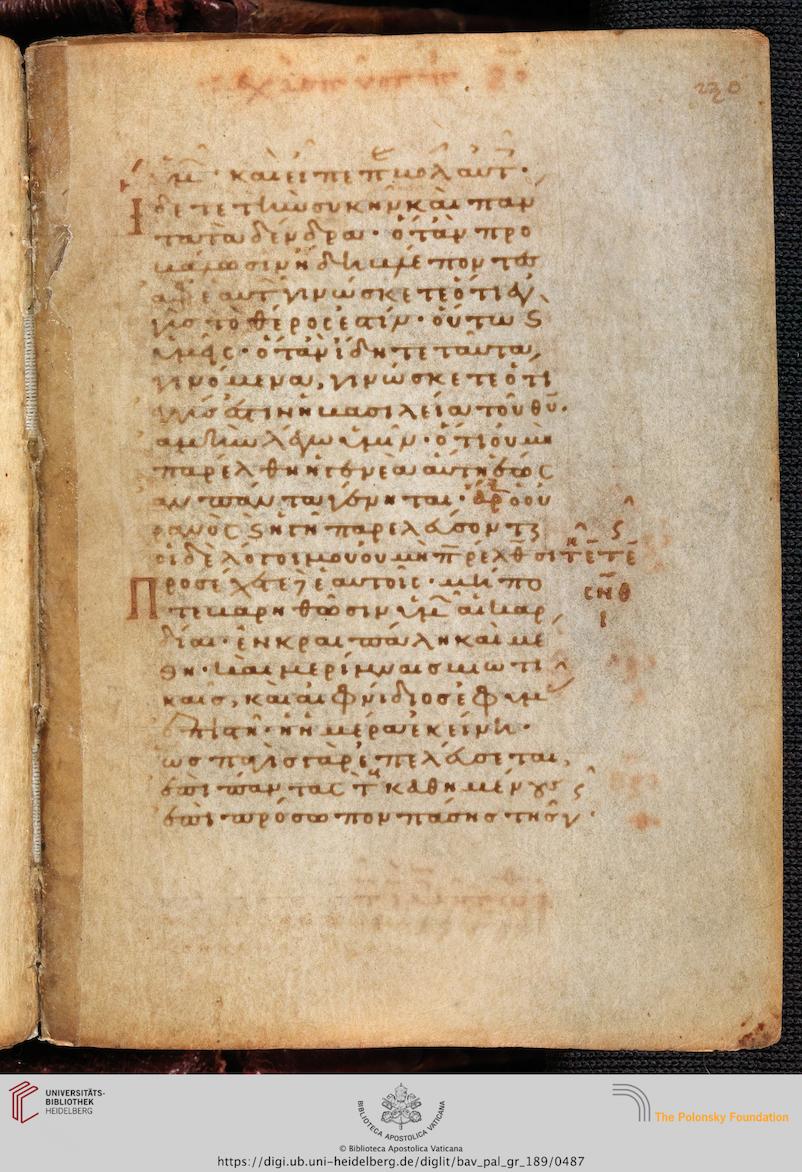 230
ὑμῶν· καὶ εἶπεν παραβολὴν αὐτοῖς·
Ἴδετε τὴν συκὴν καὶ πάν
τα τὰ δένδρα· ὅταν προ
βάλωσιν ἤδη βλέποντες
ἀφ' ἑαυτ γινώσκετε ὅτι ἐγ
γὺς τὸ θέρος ἐστίν· οὕτως
ὑμεῖς· ὅταν ἴδητε ταῦτα
γινόμενα, γινώσκετε ὅτι
ἐγγύς ἐστιν ἡ βασιλεία τοῦ θυ·
ἀμὴν λέγω ὑμῖν· ὅτι οὐ μὴ
παρέλθη ἡ γενεὰ αὕτη ἕως
ἂν πάντα γένηται· ὁ οὐ
ρανὸς ϗ ἡ γῆ παρελεύσονται
οἱ δὲ λόγοι μου οὐ μὴ παρέλθωσι
Προσέχετε δὲ ἑαυτοῖς· μή πο
τε βαρηθῶσιν ὑμῶν αἱ καρ
δίαι· ἐν κραιπάλη καὶ μέ
θη· καὶ μερίμναις βιωτι
καῖς, καὶ αἰφνίδιος ἐφ' ὑμᾶς
ἐπιστῆ· ἡ ἡμέρα ἐκείνη·
ὡς παγὶς γὰρ ἐπελεύσεται,
ἐπὶ πάντας τοὺς καθημένους
ἐπὶ πρόσωπον πάσης τῆς γῆς·
UNIVERSITÄTS-
BIBLIOTHEK
HEIDELBERG
BIBLIOTECA APOSTOLICA VATICANA
The Polonsky Foundation
© Biblioteca Apostolica Vaticana
https://digi.ub.uni-heidelberg.de/diglit/bav_pal_gr_189/0487